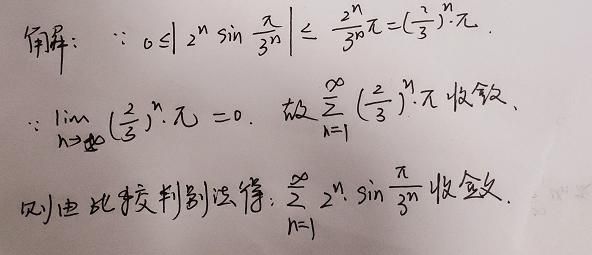 解: ∵ 0≤|2ⁿ sin π/3ⁿ| ≤ 2ⁿ/3ⁿ π = (2/3)ⁿ·π.
∵ lim n→∞ (2/3)ⁿ·π = 0. 故 ∑ n=1 ∞ (2/3)ⁿ·π 收敛.
则由比较判别法得: ∑ n=1 ∞ 2ⁿ· sin π/3ⁿ 收敛.